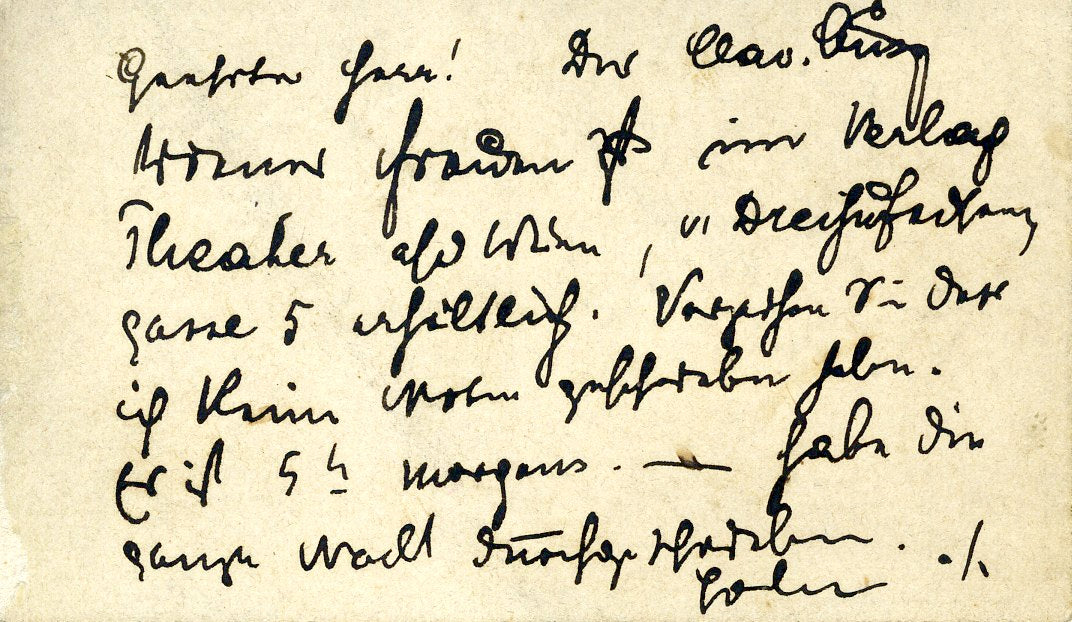 Geehrter Herr! Der Clav. Ausz
Wiener Frauen ist im Verlag
Theater a/d Wien, Dreihufeisen
gasse 5 erhältlich. Verzeihen Sie dass
ich keine Noten geschrieben habe.
Es ist 5 h morgens. — habe die
ganze Nacht durchgeschrieben. ./.
Lehár